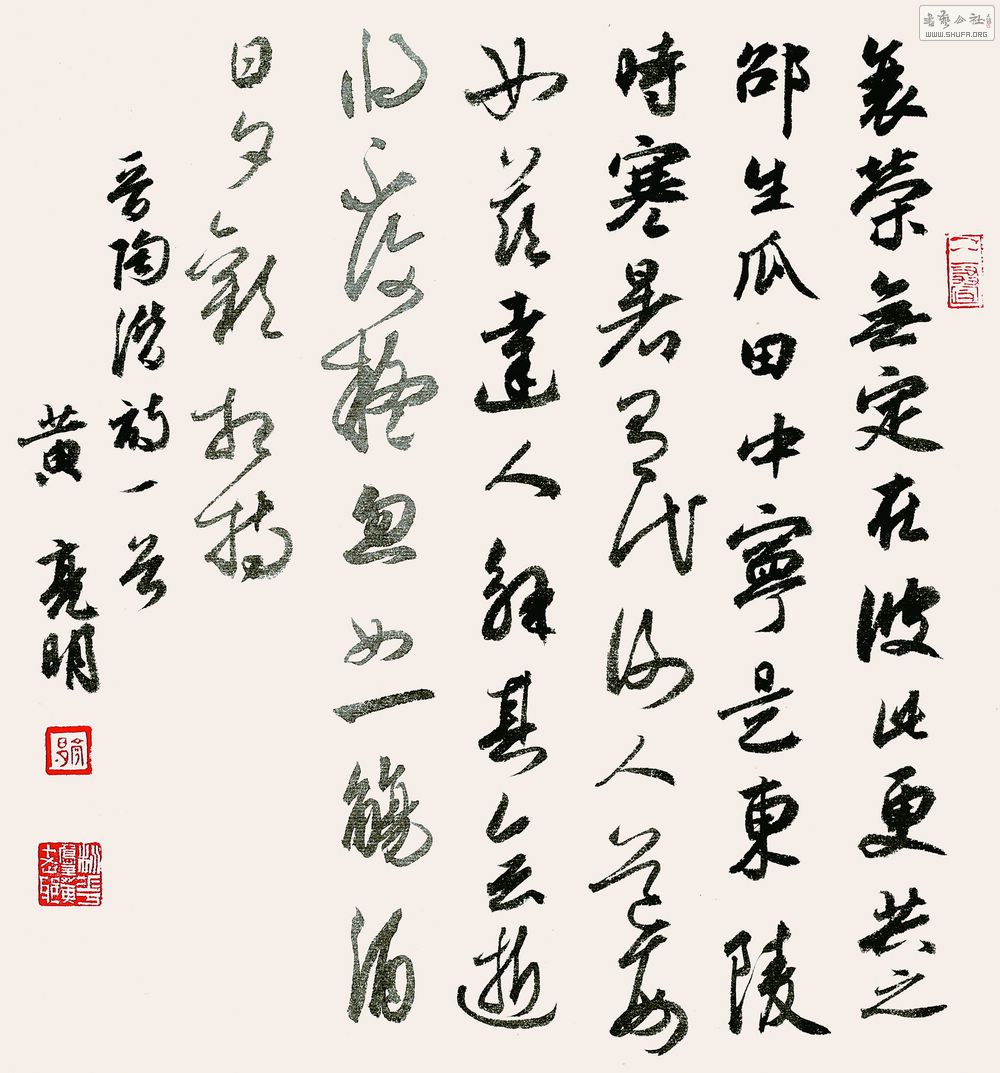 衰榮無定在彼此更共之
邵生瓜田中寧是東陵
時寒暑有代謝人道每
如茲達人解其会逝
將不復疑忽如一觴酒
日夕歡相持
晉陶潛詩一首
黃亮明
書藝公社
WWW.SHUFA.ORG